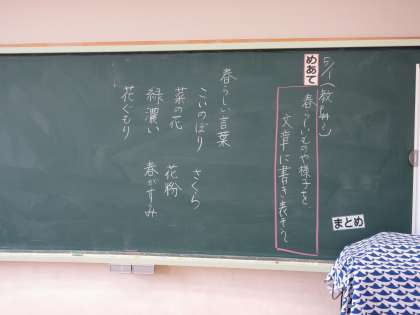 5/1
めあて
春らしいものや様子を
文章に書き表そう
春らしい言葉
こいのぼり さくら
菜の花 花粉
緑濃い 春がすみ
花ぐもり
まとめ